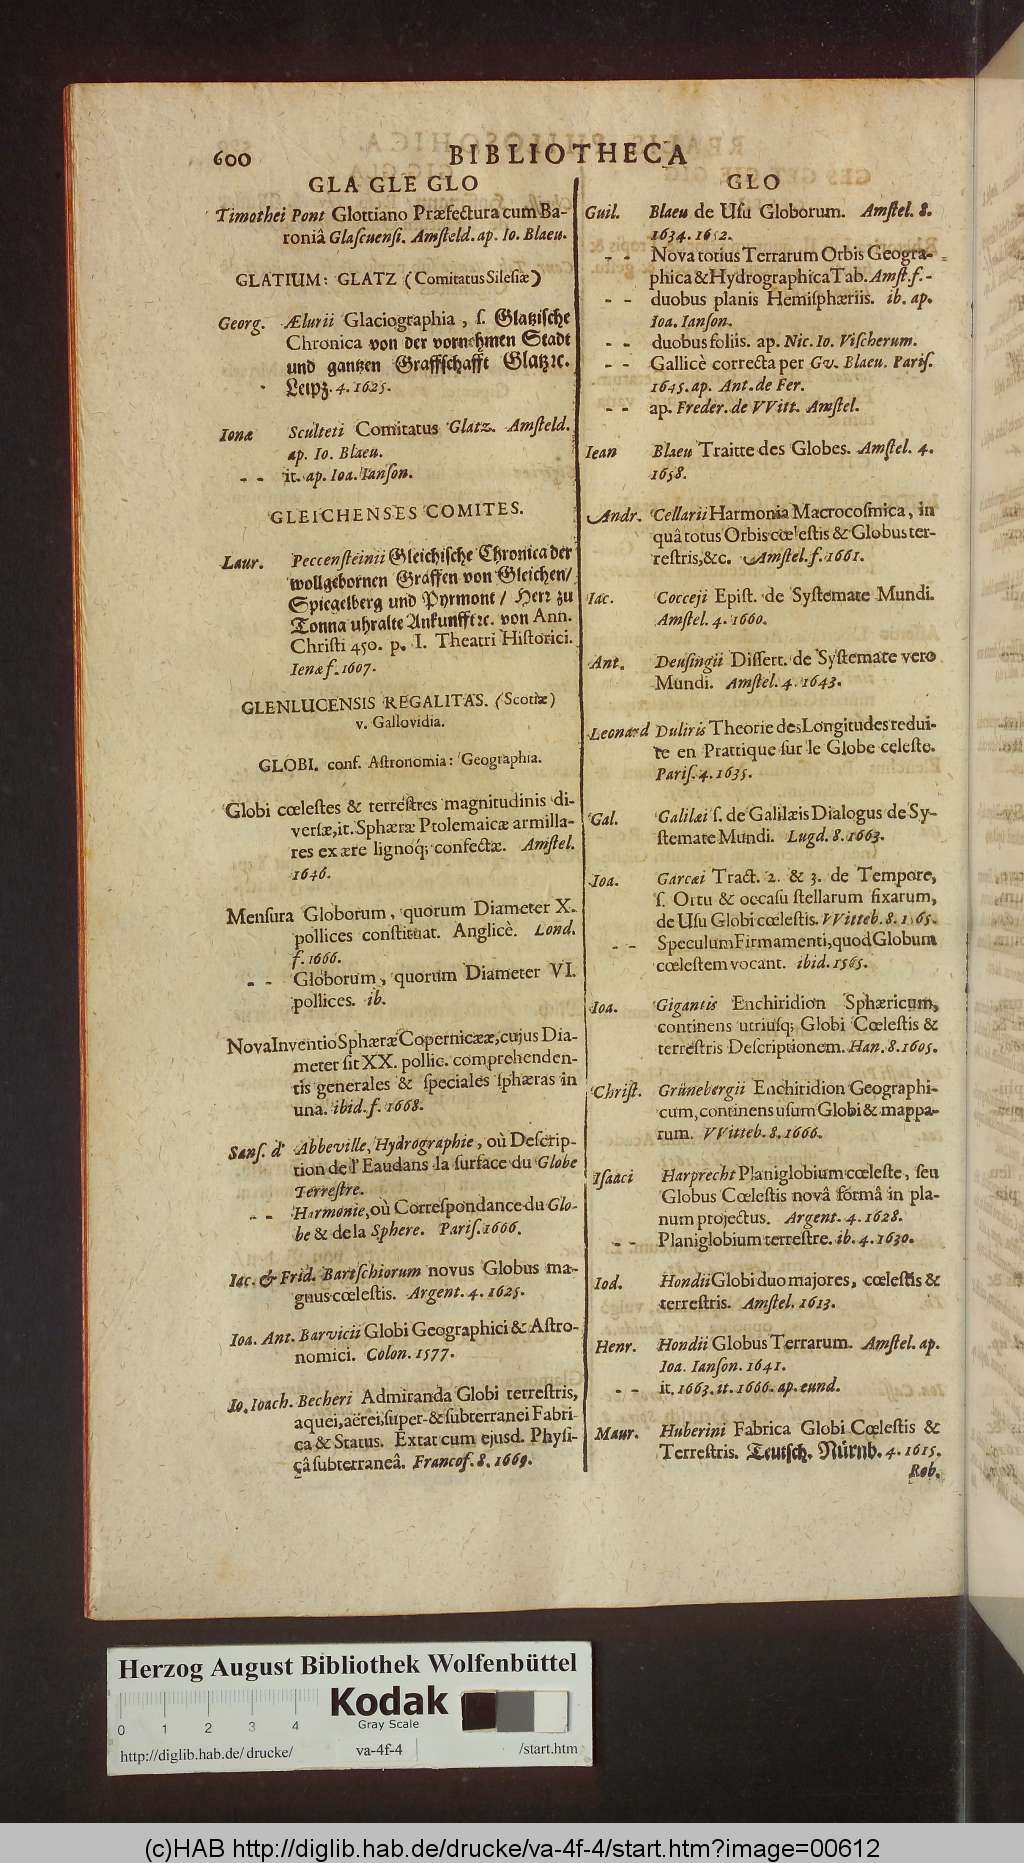 600 BIBLIOTHECA
GLA GLE GLO
Timothei Pont Glottiano Præfectura cum Ba-
roniâ Glascuensi. Amsteld. ap. Io. Blaeu.
GLATIUM: GLATZ (Comitatus Silesiæ)
Georg. Ælurii Glaciographia, s. Glatzische
Chronica von der vornehmen Stadt
und gantzen Graffschafft Glatz ꝛc.
Leipz. 4. 1625.
Ionæ Sculteti Comitatus Glatz. Amsteld.
ap. Io. Blaeu.
- - it. ap. Ioa. Ianson.
GLEICHENSES COMITES.
Laur. Peccensteinii Gleichische Chronica der
wollgebornen Graffen von Gleichen/
Spiegelberg und Pyrmont / Herr zu
Tonna uhralte Ankunfft ꝛc. von Ann.
Christi 450. p. I. Theatri Historici.
Ienæ f. 1607.
GLENLUCENSIS REGALITAS. (Scotiæ)
v. Gallovidia.
GLOBI. conf. Astronomia: Geographia.
Globi cœlestes & terrestres magnitudinis di-
versæ, it. Sphæræ Ptolemaicæ armilla-
res ex ære lignoq; confectæ. Amstel.
1646.
Mensura Globorum, quorum Diameter X.
pollices constituat. Anglicè. Lond.
f. 1666.
- - Globorum, quorum Diameter VI.
pollices. ib.
Nova Inventio Sphæræ Copernicææ, cujus Dia-
meter sit XX. pollic. comprehenden-
tis generales & speciales sphæras in
una. ibid. f. 1668.
Sans. d' Abbeville, Hydrographie, où Descrip-
tion de l'Eau dans la surface du Globe
Terrestre.
- - Harmonie, où Correspondance du Glo-
be & de la Sphere. Paris. 1666.
Iac. & Frid. Bartschiorum novus Globus ma-
gnus cœlestis. Argent. 4. 1625.
Ioa. Ant. Barvicii Globi Geographici & Astro-
nomici. Colon. 1577.
Io. Ioach. Becheri Admiranda Globi terrestris,
aquei, aërei, super- & subterranei Fabri-
ca & Status. Extat cum ejusd. Physi-
câ subterraneâ. Francof. 8. 1669.
GLO
Guil. Blaeu de Usu Globorum. Amstel. 8.
1634. 1652.
- - Nova totius Terrarum Orbis Geogra-
phica & Hydrographica Tab. Amst. f. -
- - duobus planis Hemisphæriis. ib. ap.
Ioa. Ianson.
- - duobus foliis. ap. Nic. Io. Vischerum.
- - Gallicè correcta per Gv. Blaeu. Paris.
1645. ap. Ant. de Fer.
- - ap. Freder. de VVitt. Amstel.
Iean Blaeu Traitte des Globes. Amstel. 4.
1658.
Andr. Cellarii Harmonia Macrocosmica, in
quâ totus Orbis cœlestis & Globus ter-
restris, &c. Amstel. f. 1661.
Iac. Cocceji Epist. de Systemate Mundi.
Amstel. 4. 1660.
Ant. Deusingii Dissert. de Systemate vero
Mundi. Amstel. 4. 1643.
Leonard Duliris Theorie des Longitudes redui-
te en Prattique sur le Globe celeste.
Paris. 4. 1635.
Gal. Galilæi s. de Galilæis Dialogus de Sy-
stemate Mundi. Lugd. 8. 1663.
Ioa. Garcæi Tract. 2. & 3. de Tempore,
s. Ortu & occasu stellarum fixarum,
de Usu Globi cœlestis. VVitteb. 8. 1565.
- - Speculum Firmamenti, quod Globum
cœlestem vocant. ibid. 1565.
Ioa. Gigantis Enchiridion Sphæricum,
continens utriusq; Globi Cœlestis &
terrestris Descriptionem. Han. 8. 1605.
Christ. Grünebergii Enchiridion Geographi-
cum, continens usum Globi & mappa-
rum. VVitteb. 8. 1666.
Isaaci Harprecht Planiglobium cœleste, seu
Globus Cœlestis novâ formâ in pla-
num projectus. Argent. 4. 1628.
- - Planiglobium terrestre. ib. 4. 1630.
Iod. Hondii Globi duo majores, cœlestis &
terrestris. Amstel. 1613.
Henr. Hondii Globus Terrarum. Amstel. ap.
Ioa. Ianson. 1641.
- - it. 1663. it. 1666. ap. eund.
Maur. Huberini Fabrica Globi Cœlestis &
Terrestris. Teutsch. Nürnb. 4. 1615.
Rob.
Herzog August Bibliothek Wolfenbüttel
0 1 2 3 4
Kodak
Gray Scale
http://diglib.hab.de/drucke/ va-4f-4 /start.htm
(c)HAB http://diglib.hab.de/drucke/va-4f-4/start.htm?image=00612